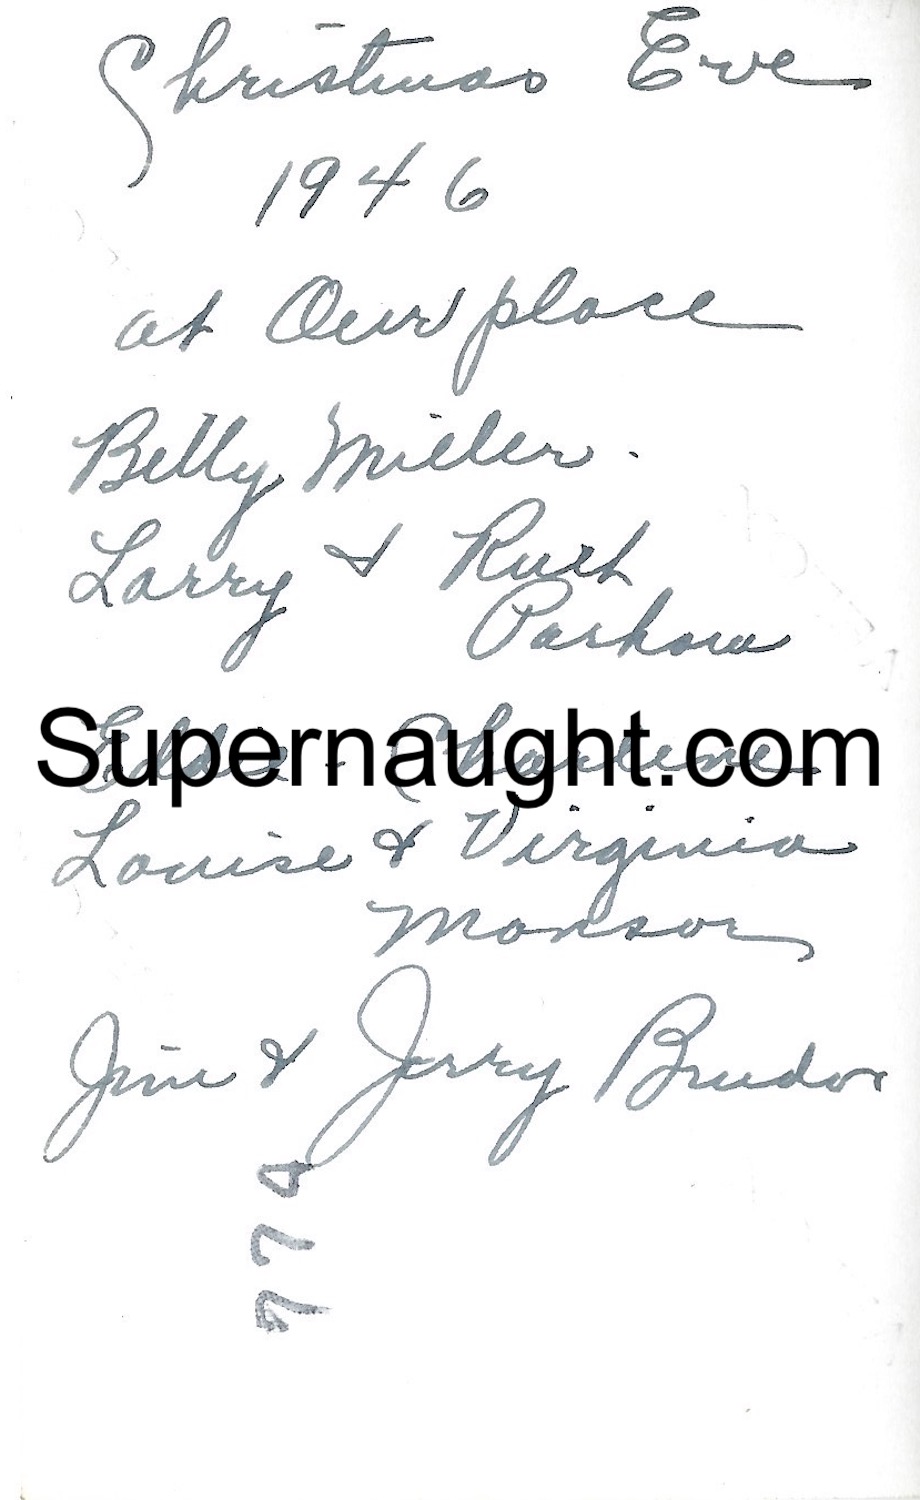 Christmas Eve
1946
at Our place
Betty Miller.
Larry & Ruth
Parkow
Supernaught.com
Eddie - Charlene
Louise & Virginia
Monson
Jim & Jerry Brudor
774